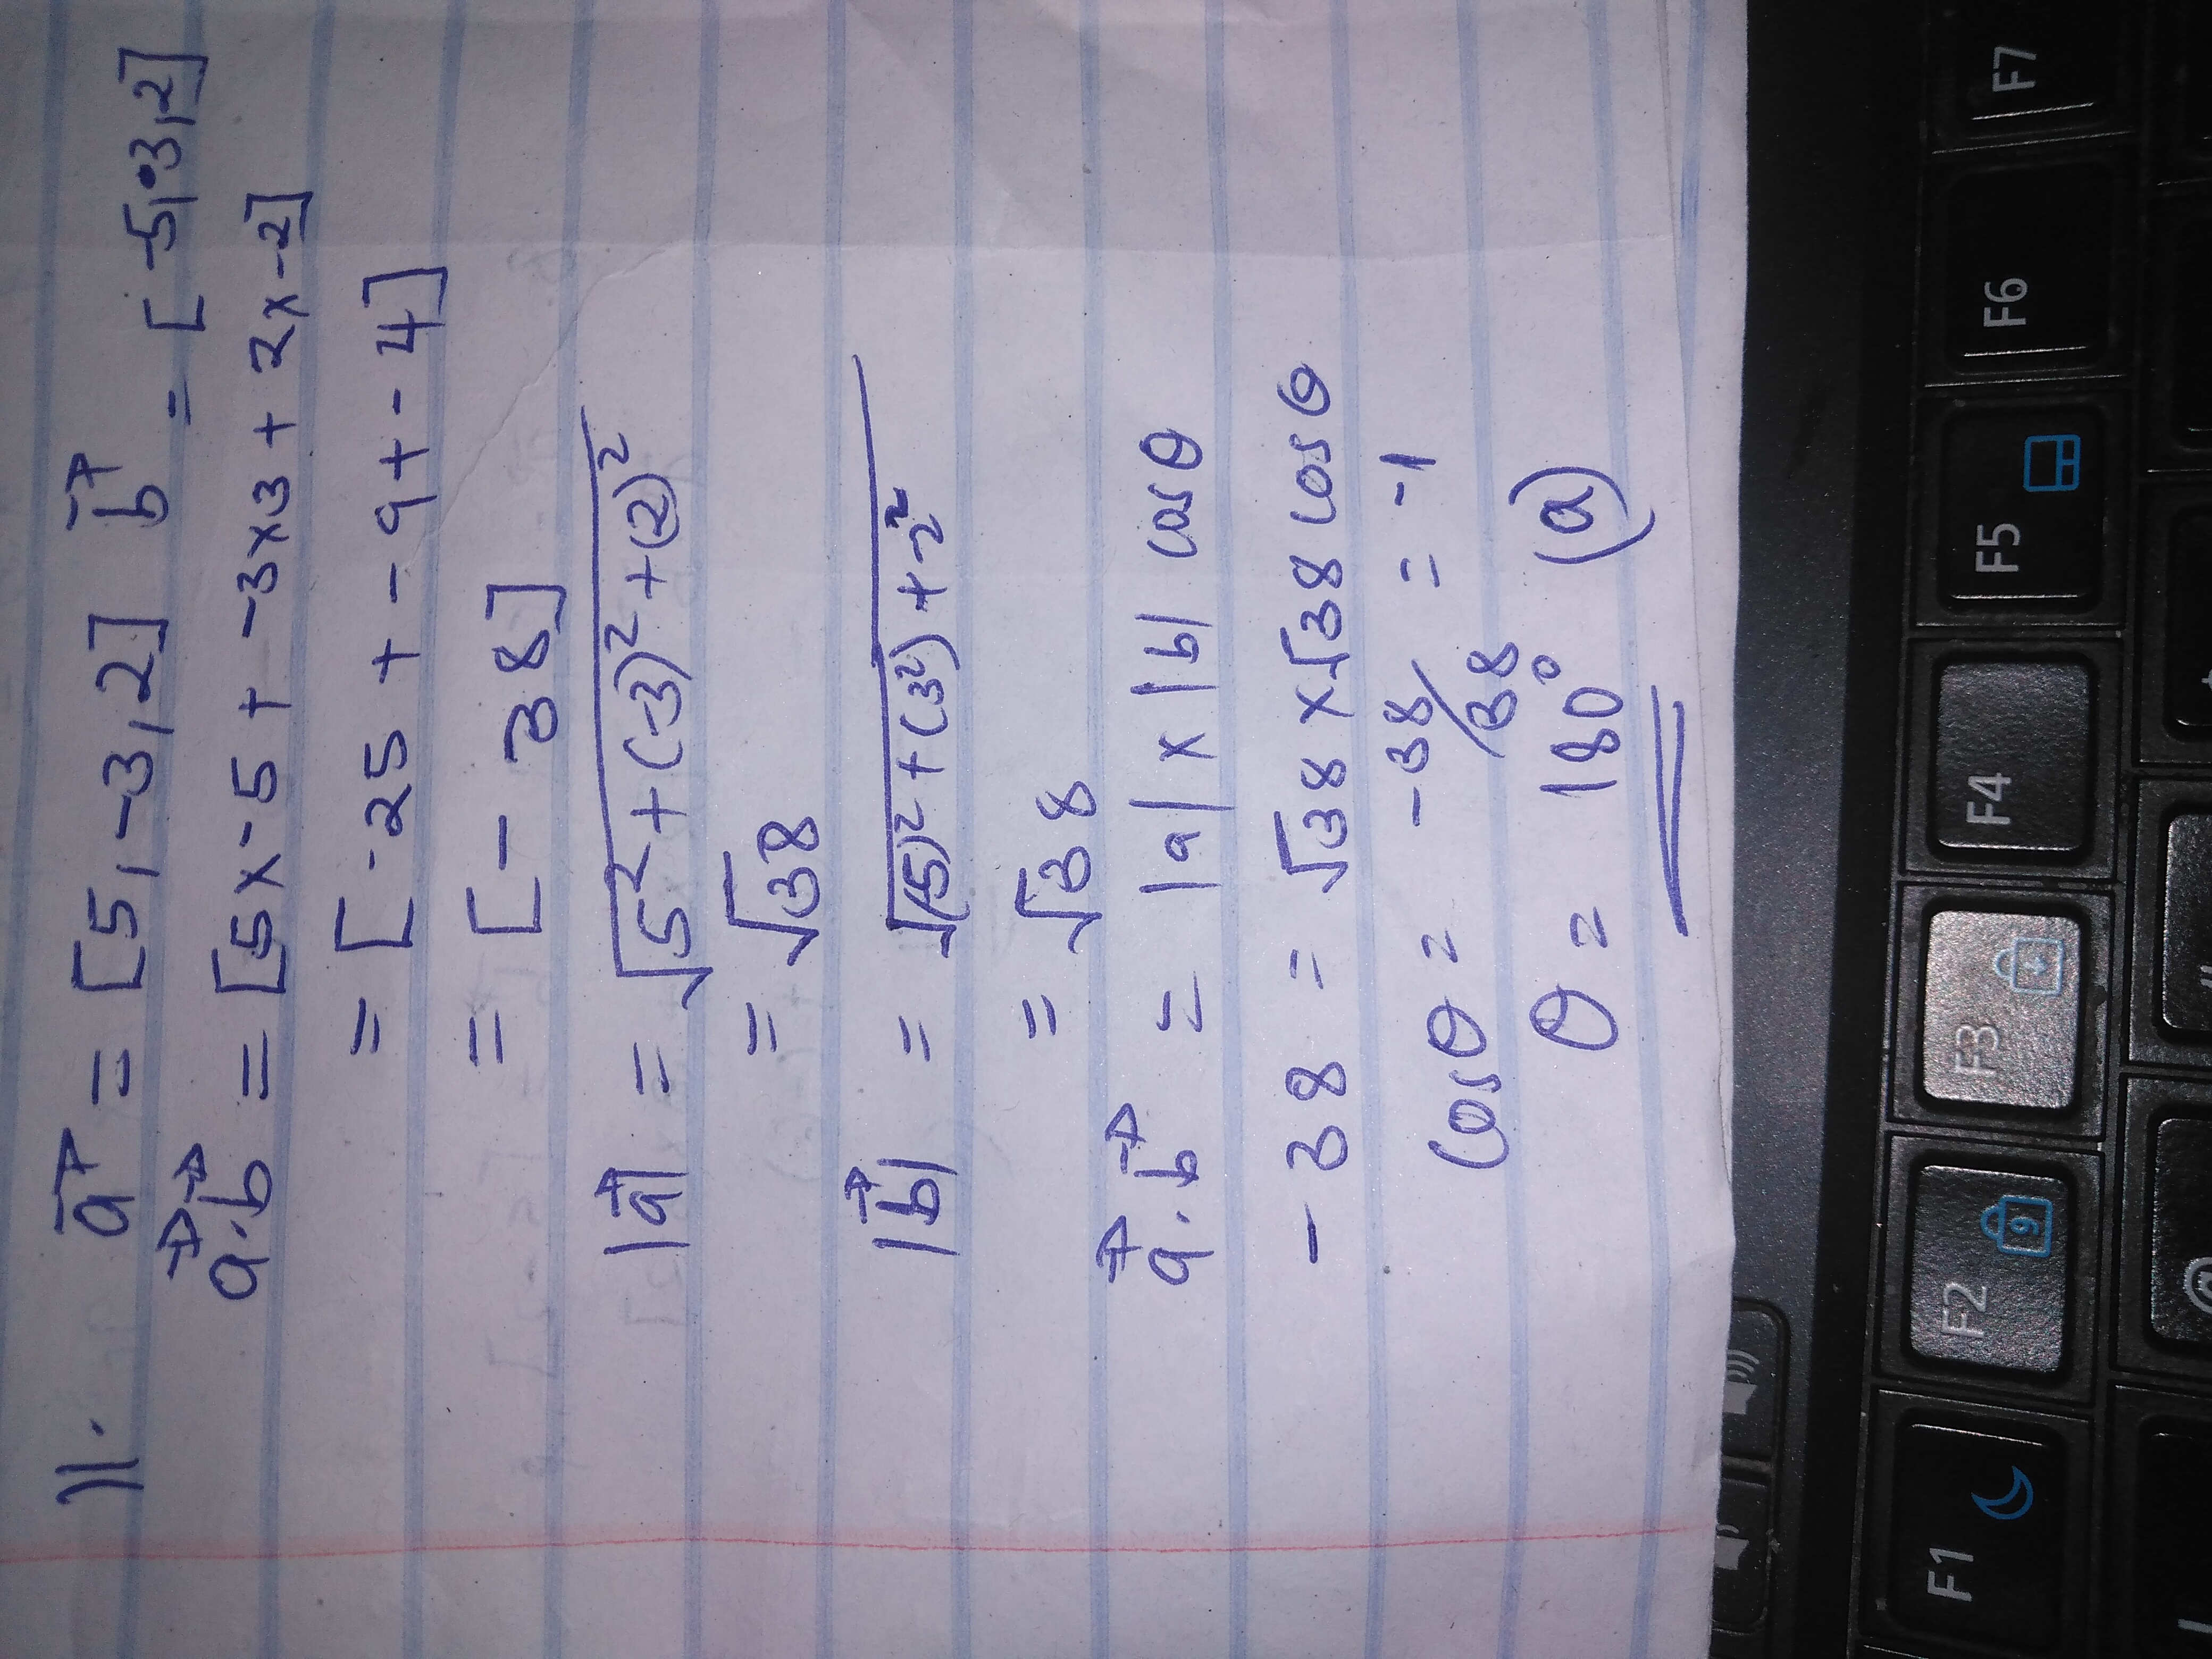 11. a⃗ = [5, -3, 2] b⃗ = [-5, 3, 2]
a⃗.b⃗ = [5x-5 + -3x3 + 2x-2]
= [-25 + -9 + -4]
= [-38]
|a⃗| = √5² + (-3)² + (2)²
= √38
|b⃗| = √(-5)² + (3²) + 2²
= √38
a⃗.b⃗ = |a| x |b| cos θ
-38 = √38 x √38 cos θ
Cos θ = -38/38 = -1
θ = 180° (a)
F1 F2 F3 F4 F5 F6 F7
9
@